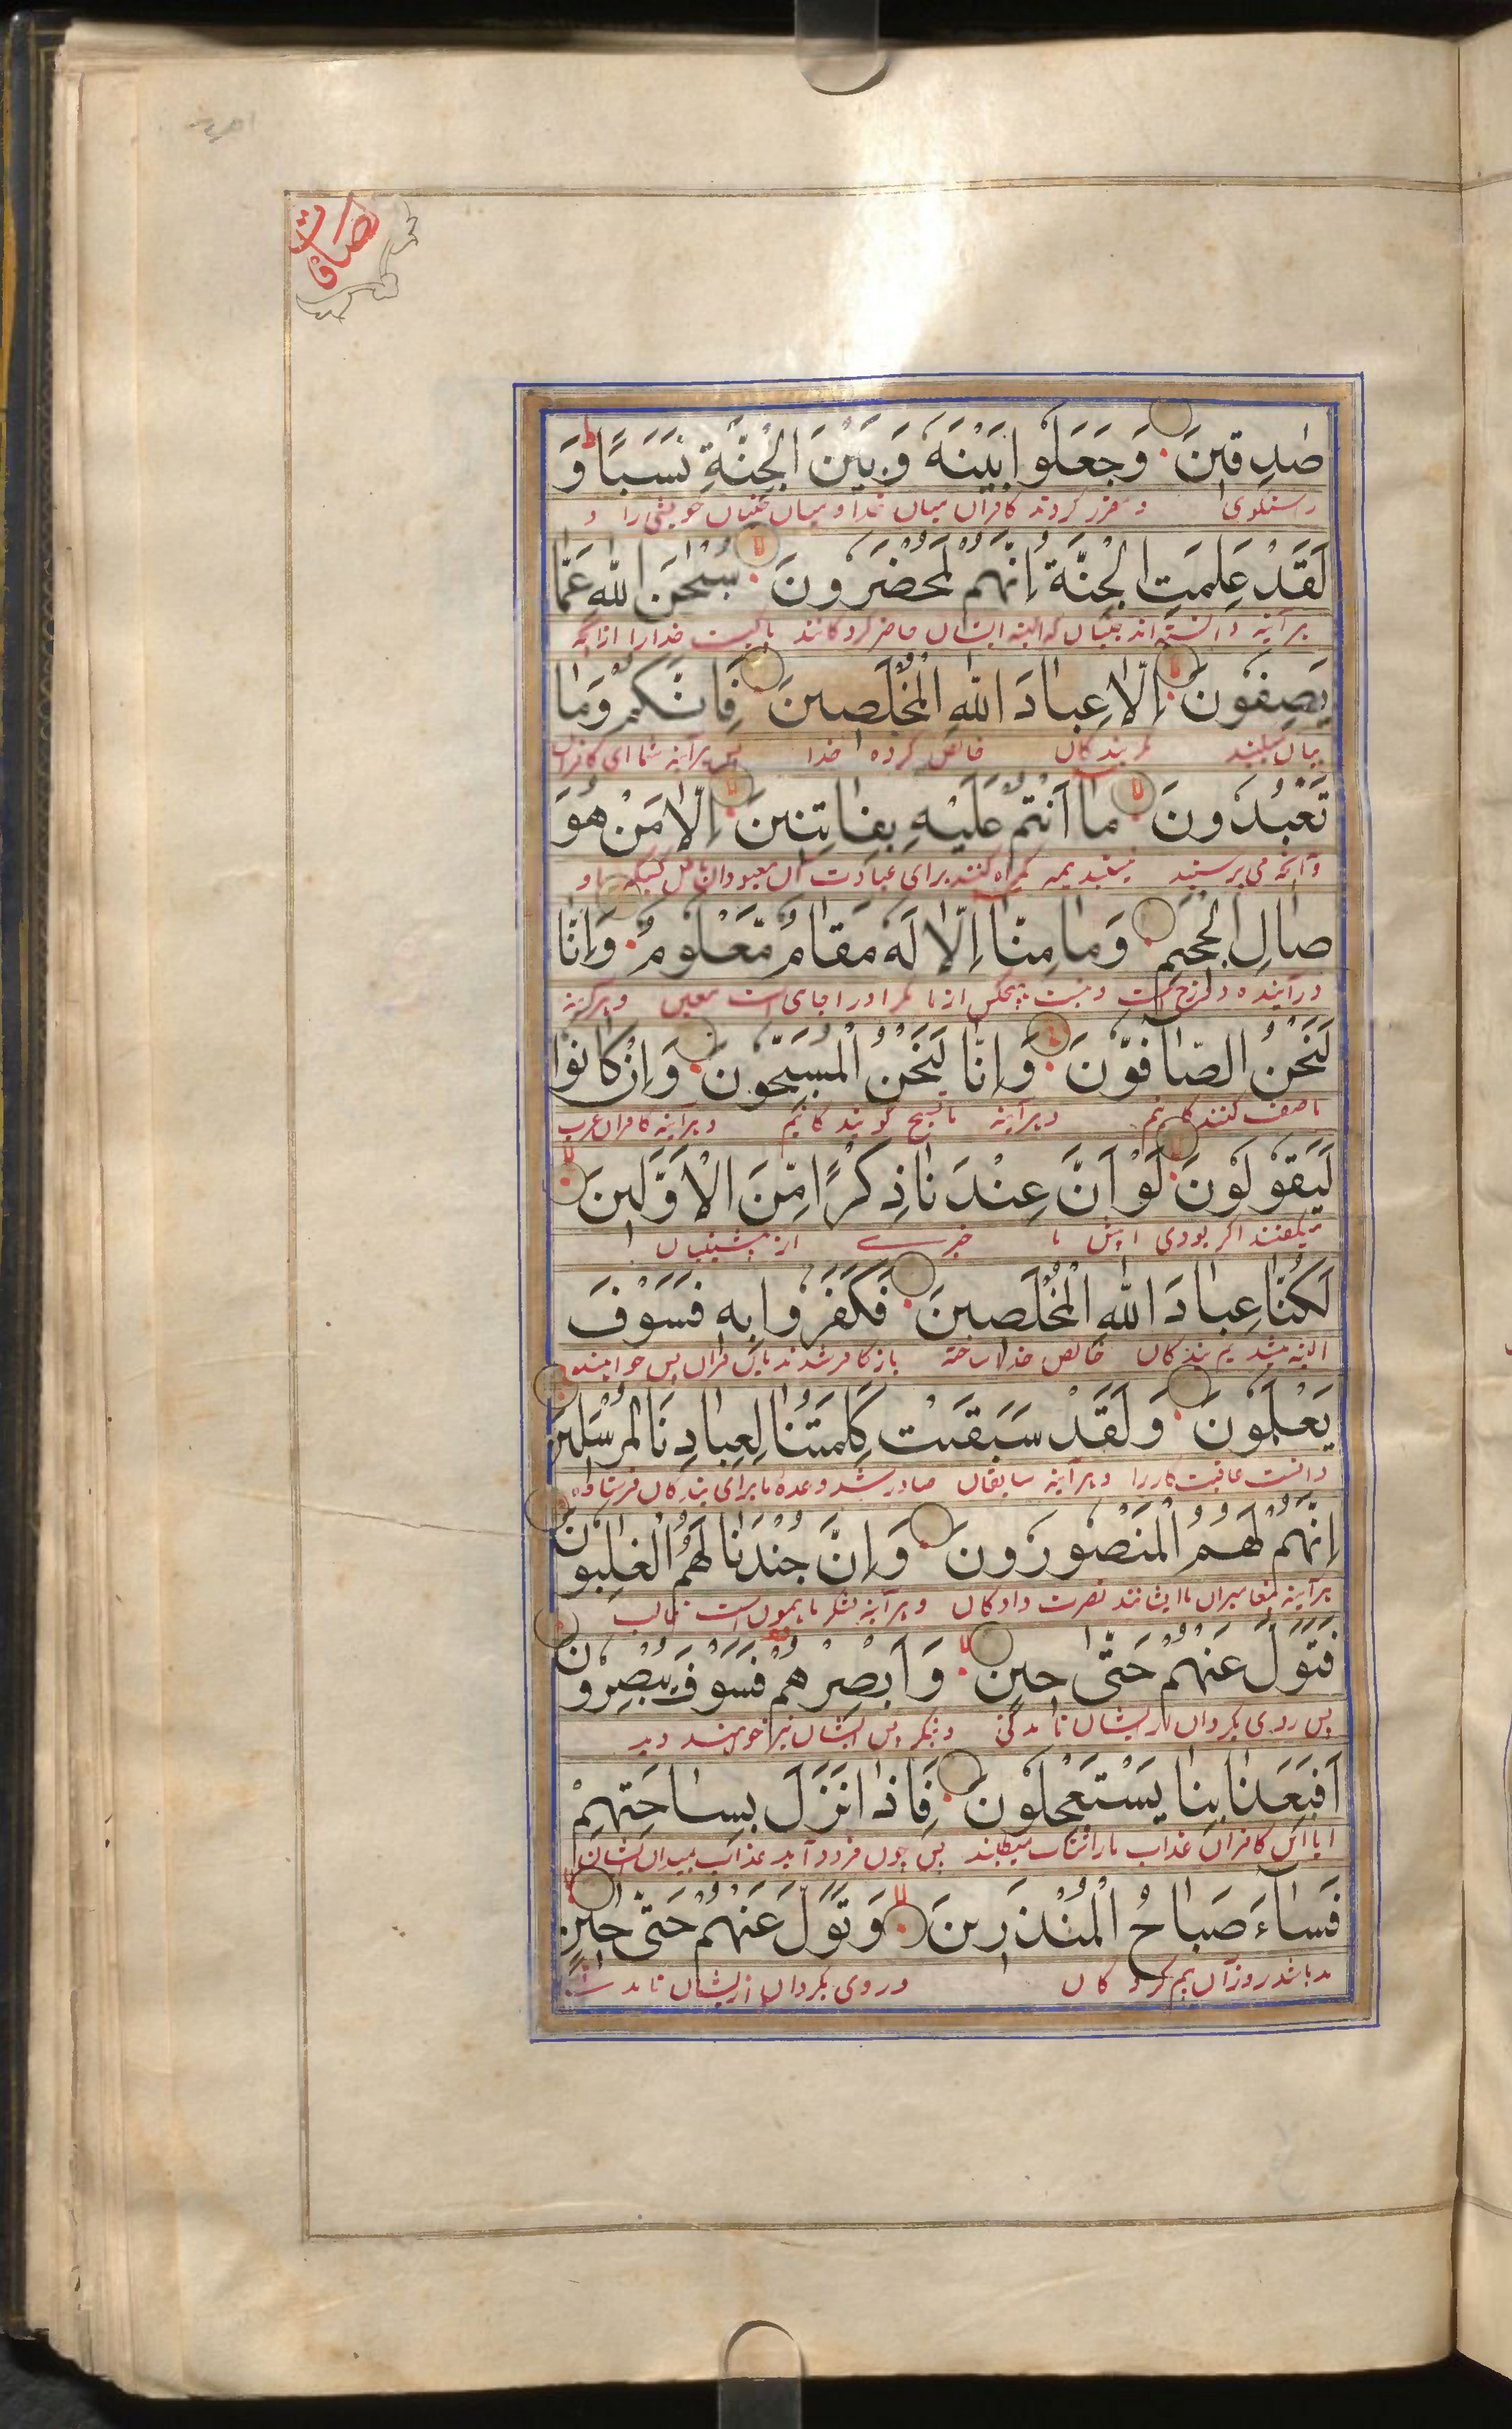 صافات
صٰدِقِينَ وَجَعَلُوا بَيْنَهُ وَبَيْنَ الْجِنَّةِ نَسَبًا وَ
و مقرر کردند کافران میان خدا و میان جنیان خویشی را و
لَقَدْ عَلِمَتِ الْجِنَّةُ اِنَّهُمْ لَمُحْضَرُونَ سُبْحٰنَ اللّٰهِ عَمَّا
هر آینه دانسته اند جنیان که البته ایشان حاضر کردگانند پاکیست خدا را از آنچه
يَصِفُونَ اِلَّا عِبَادَ اللّٰهِ الْمُخْلَصِينَ فَاِنَّكُمْ وَمَا
بیان میکنند مگر بندگان خالص کرده خدا پس هر آینه شما ای کافران
تَعْبُدُونَ مَا اَنْتُمْ عَلَيْهِ بِفَاتِنِينَ اِلَّا مَنْ هُوَ
و آنچه می پرستید نیستید همه گمراه کننده برای عبادت آن معبودان
صَالِ الْجَحِيمِ وَمَا مِنَّا اِلَّا لَهُ مَقَامٌ مَّعْلُومٌ وَاِنَّا
در آینده دوزخ است و نیست هیچکس از ما مگر او را جای است معین و هر آینه
لَنَحْنُ الصَّافُّونَ وَاِنَّا لَنَحْنُ الْمُسَبِّحُونَ وَاِنْ كَانُوا
ما صف کنندگانیم و هر آینه ما تسبیح گویندگانیم و هر آینه کافران عرب
لَيَقُولُونَ لَوْ اَنَّ عِنْدَنَا ذِكْرًا مِّنَ الْاَوَّلِينَ
میگفتند اگر بودی پیش ما خبرے از پیشینیان
لَكُنَّا عِبَادَ اللّٰهِ الْمُخْلَصِينَ فَكَفَرُوا بِهِ فَسَوْفَ
البته میشدیم بندگان خالص خدا ساخته باز کافر شدند باین قرآن پس خواهند
يَعْلَمُونَ وَلَقَدْ سَبَقَتْ كَلِمَتُنَا لِعِبَادِنَا الْمُرْسَلِينَ
دانست عاقبت کار را و هر آینه سابقان صادر شد وعده ما برای بندگان فرستاده
اِنَّهُمْ لَهُمُ الْمَنْصُورُونَ وَاِنَّ جُنْدَنَا لَهُمُ الْغٰلِبُونَ
هر آینه پیغامبران ما ایشانند نصرت دادگان و هر آینه لشکر ما همون است غالب
فَتَوَلَّ عَنْهُمْ حَتّٰى حِينٍ وَاَبْصِرْهُمْ فَسَوْفَ يُبْصِرُونَ
پس روی بگردان از ایشان تا مدتی و بنگر پس ایشان نیز خواهند دید
اَفَبِعَذَابِنَا يَسْتَعْجِلُونَ فَاِذَا نَزَلَ بِسَاحَتِهِمْ
ایا این کافران عذاب ما را شتاب میطلبند پس چون فرود آید عذاب بمیدان ایشان
فَسَاءَ صَبَاحُ الْمُنْذَرِينَ وَتَوَلَّ عَنْهُمْ حَتّٰى حِينٍ
بد باشد روز آن بیم کردگان و روی بگردان از ایشان تا مدت